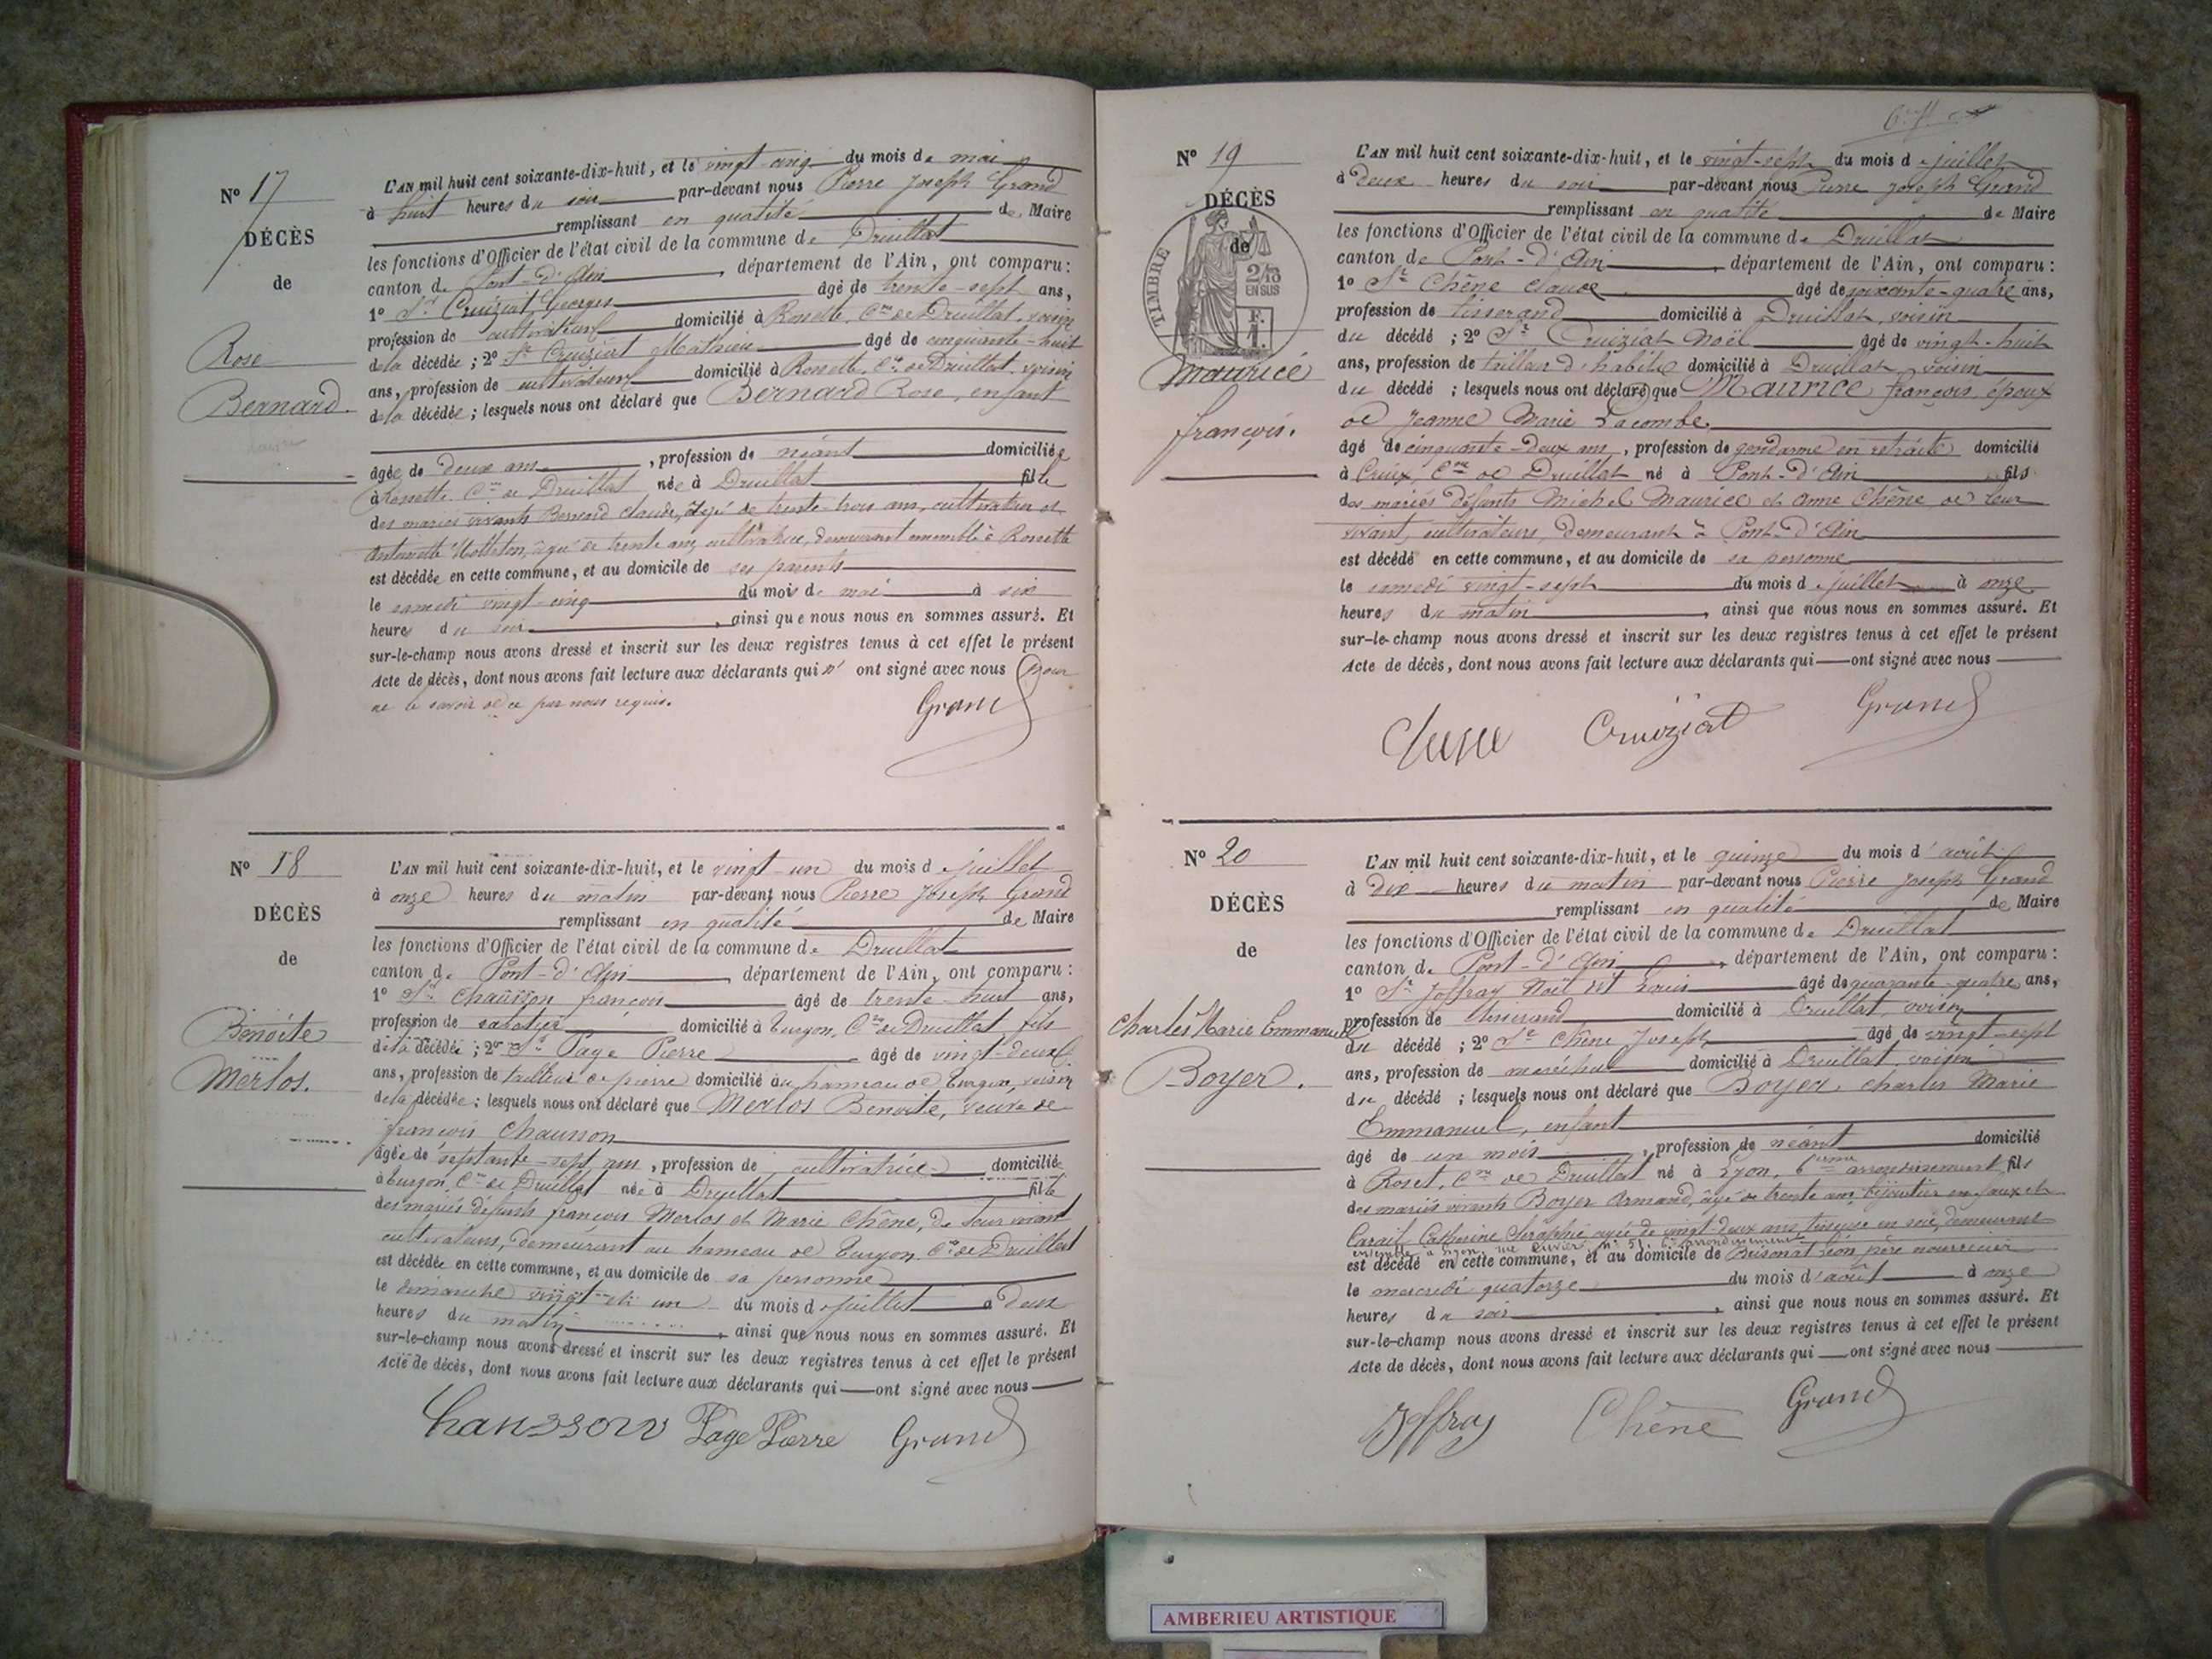 Nº 17
DÉCÈS
de
Rose
Bernard.
L'AN mil huit cent soixante-dix-huit, et le vingt-cinq du mois de mai
à huit heures du soir par-devant nous Pierre Joseph Grand
remplissant en qualité de Maire
les fonctions d'Officier de l'état civil de la commune de Druillat
canton de Pont-d'Ain, département de l'Ain, ont comparu :
1º Sr Cruiziat Georges âgé de trente-sept ans,
profession de cultivateur domicilié à Rossette, Cne de Druillat, voisin
de la décédée ; 2º Sr Cruiziat Mathieu âgé de cinquante-huit
ans, profession de cultivateur domicilié à Rossette, Cne de Druillat, voisin
de la décédée ; lesquels nous ont déclaré que Bernard Rose, enfant
âgée de deux ans, profession de néant domiciliée
à Rossette Cne de Druillat née à Druillat fille
des mariés vivants Bernard Claude, âgé de trente trois ans, cultivateur et
Antoinette âgée de trente ans, cultivatrice, demeurant ensemble à Rossette
est décédée en cette commune, et au domicile de ses parents
le samedi vingt-cinq du mois de mai à six
heures du soir, ainsi que nous nous en sommes assuré. Et
sur-le-champ nous avons dressé et inscrit sur les deux registres tenus à cet effet le présent
Acte de décès, dont nous avons fait lecture aux déclarants qui n' ont signé avec nous pour
ne le savoir de ce par nous requis.
Grand
Nº 18
DÉCÈS
de
Benoite
Merlos.
L'AN mil huit cent soixante-dix-huit, et le vingt-un du mois de juillet
à onze heures du matin par-devant nous Pierre Joseph Grand
remplissant en qualité de Maire
les fonctions d'Officier de l'état civil de la commune de Druillat
canton de Pont-d'Ain, département de l'Ain, ont comparu :
1º Sr Chausson françois âgé de trente-huit ans,
profession de sabotier domicilié à Turgon, Cne de Druillat, fils
de la décédée ; 2º Sr Page Pierre âgé de vingt-deux
ans, profession de tailleur de pierre domicilié au hameau de Turgon, voisin
de la décédée ; lesquels nous ont déclaré que Merlos Benoite, veuve de
françois Chausson
âgée de septante-sept ans, profession de cultivatrice domiciliée
à Turgon, Cne de Druillat née à Druillat fille
des mariés défunts françois Merlos et Marie Chêne, de leur vivant
cultivateurs, demeurant au hameau de Turgon Cne de Druillat
est décédée en cette commune, et au domicile de sa personne
le dimanche vingt-et-un du mois de juillet à deux
heures du matin, ainsi que nous nous en sommes assuré. Et
sur-le-champ nous avons dressé et inscrit sur les deux registres tenus à cet effet le présent
Acte de décès, dont nous avons fait lecture aux déclarants qui ont signé avec nous
Chausson Page Pierre Grand
Nº 19
DÉCÈS
de
TIMBRE
2/10
EN SUS
F.
1.
Maurice
françois.
L'AN mil huit cent soixante-dix-huit, et le vingt-sept du mois de juillet
à Deux heures du soir par-devant nous Pierre Joseph Grand
remplissant en qualité de Maire
les fonctions d'Officier de l'état civil de la commune de Druillat
canton de Pont-d'Ain, département de l'Ain, ont comparu :
1º Sr Chêne Claude âgé de soixante-quatre ans,
profession de tisserand domicilié à Druillat, voisin
du décédé ; 2º Sr Cruiziat Noël âgé de vingt-huit
ans, profession de tailleur d'habits domicilié à Druillat, voisin
du décédé ; lesquels nous ont déclaré que Maurice françois, époux
de Jeanne Marie Lacombe.
âgé de cinquante-deux ans, profession de gendarme en retraite domicilié
à Cruix, Cne de Druillat né à Pont-d'Ain fils
des mariés défunts Michel Maurice et Anne Chêne de leur
vivant, cultivateurs, demeurant à Pont-d'Ain
est décédé en cette commune, et au domicile de sa personne
le samedi vingt-sept du mois de juillet à onze
heures du matin, ainsi que nous nous en sommes assuré. Et
sur-le-champ nous avons dressé et inscrit sur les deux registres tenus à cet effet le présent
Acte de décès, dont nous avons fait lecture aux déclarants qui ont signé avec nous
Cruiziat Grand
Nº 20
DÉCÈS
de
Charles Marie Emmanuel
Boyer.
L'AN mil huit cent soixante-dix-huit, et le quinze du mois d'août
à Dix heures du matin par-devant nous Pierre Joseph Grand
remplissant en qualité de Maire
les fonctions d'Officier de l'état civil de la commune de Druillat
canton de Pont-d'Ain, département de l'Ain, ont comparu :
1º Sr Joffray Noël dit Louis âgé de quarante-quatre ans,
profession de tisserand domicilié à Druillat, voisin
du décédé ; 2º Sr Chêne Joseph âgé de vingt-sept
ans, profession de maréchal domicilié à Druillat, voisin
du décédé ; lesquels nous ont déclaré que Boyer, Charles Marie
Emmanuel, enfant
âgé de un mois, profession de néant domicilié
à Roset, Cne de Druillat né à Lyon, 6eme arrondissement, fils
des mariés vivants Boyer Armand, âgé de trente ans bijoutier en faux et
Catherine Séraphie agée de vingt-deux ans, tisseuse en soie, demeurant
ensemble à Lyon, rue Cuvier nº 51, 6e arrondissement
est décédé en cette commune, et au domicile de Brisonat Léon, père nourricier
le mercredi quatorze du mois d'août à onze
heures du soir, ainsi que nous nous en sommes assuré. Et
sur-le-champ nous avons dressé et inscrit sur les deux registres tenus à cet effet le présent
Acte de décès, dont nous avons fait lecture aux déclarants qui ont signé avec nous
Joffray Chêne Grand
AMBERIEU ARTISTIQUE